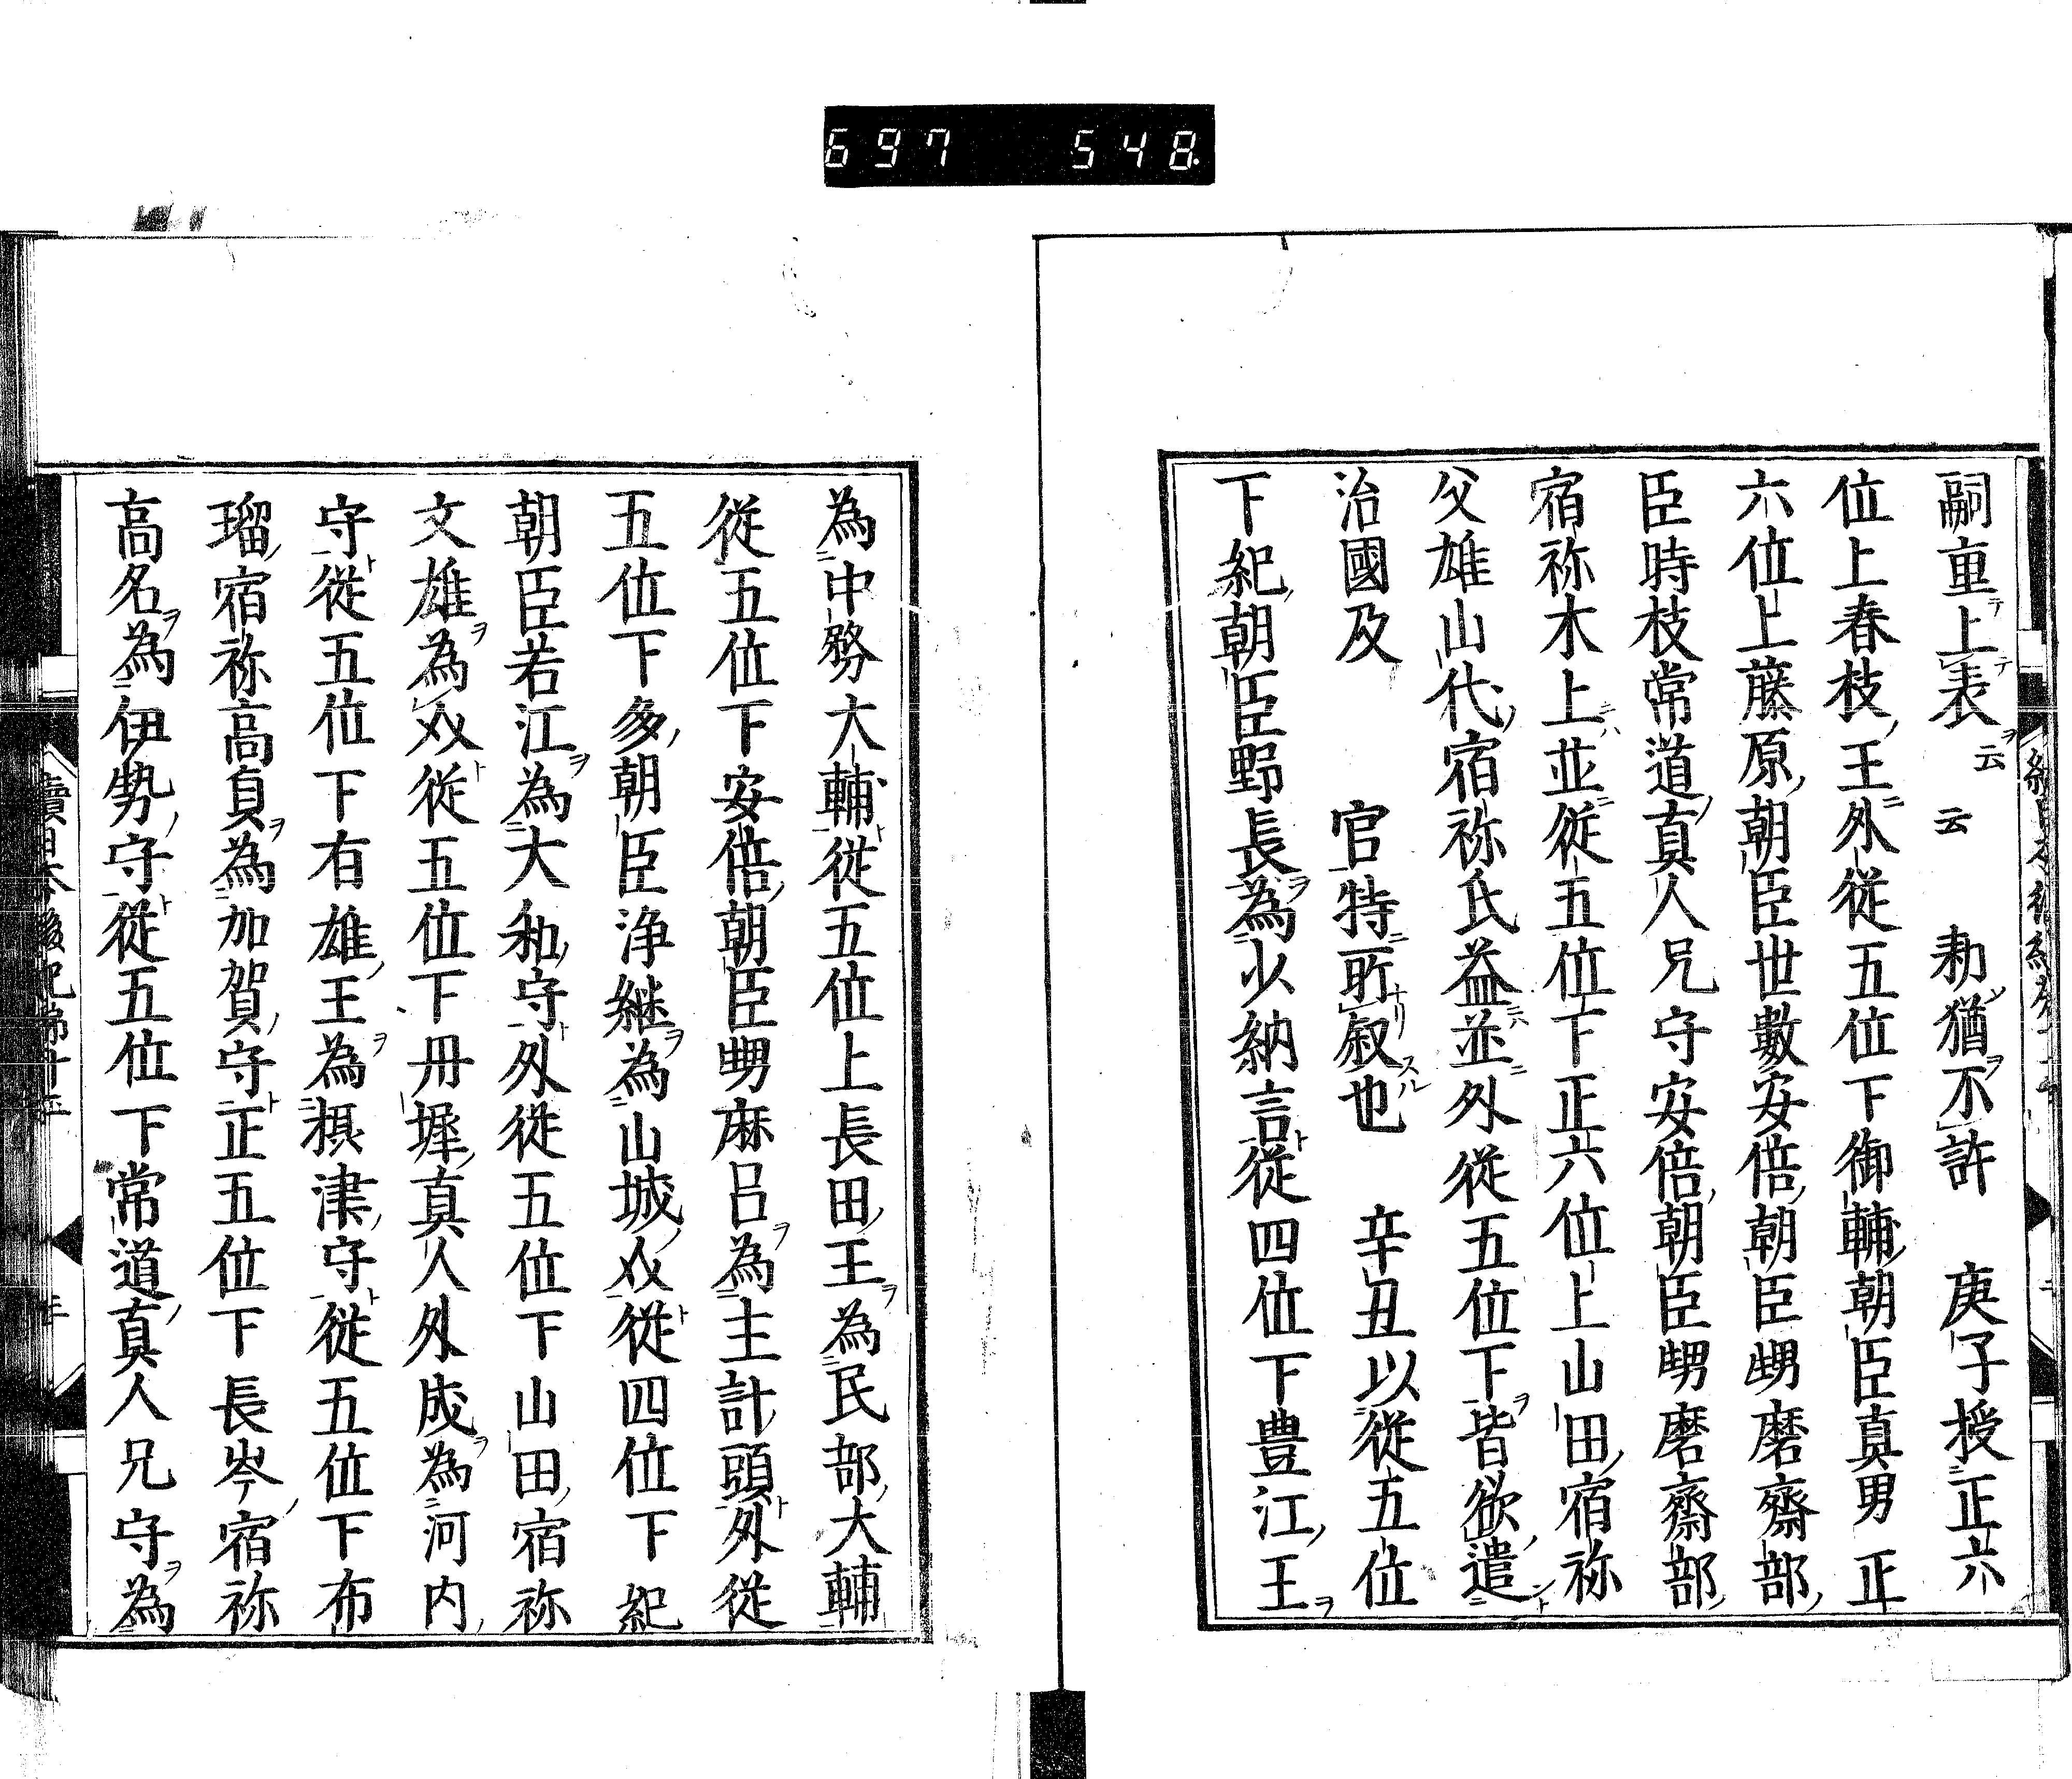 697 548
嗣重上表云云 勅猶不許 庚子授正六
位上春枝王外従五位下御輔朝臣真男正
六位上藤原朝臣世數安倍朝臣甥磨齋部
臣時枝常道真人兄守安倍朝臣甥磨齋部
宿祢木上並従五位下正六位上山田宿祢
父雄山代宿祢氏益並外従五位下皆欲遣
治國及 官特所叙也 辛丑以従五位
下紀朝臣野長為少納言従四位下豊江王
為中務大輔従五位上長田王為民部大輔
従五位下安倍朝臣甥麻呂為主計頭外従
五位下多朝臣浄継為山城介従四位下紀
朝臣若江為大和守外従五位下山田宿祢
文雄為介従五位下丹墀真人外成為河内
守従五位下有雄王為摂津守従五位下布
瑠宿祢高貞為加賀守正五位下長岑宿祢
高名為伊勢守従五位下常道真人兄守為
續日本後紀